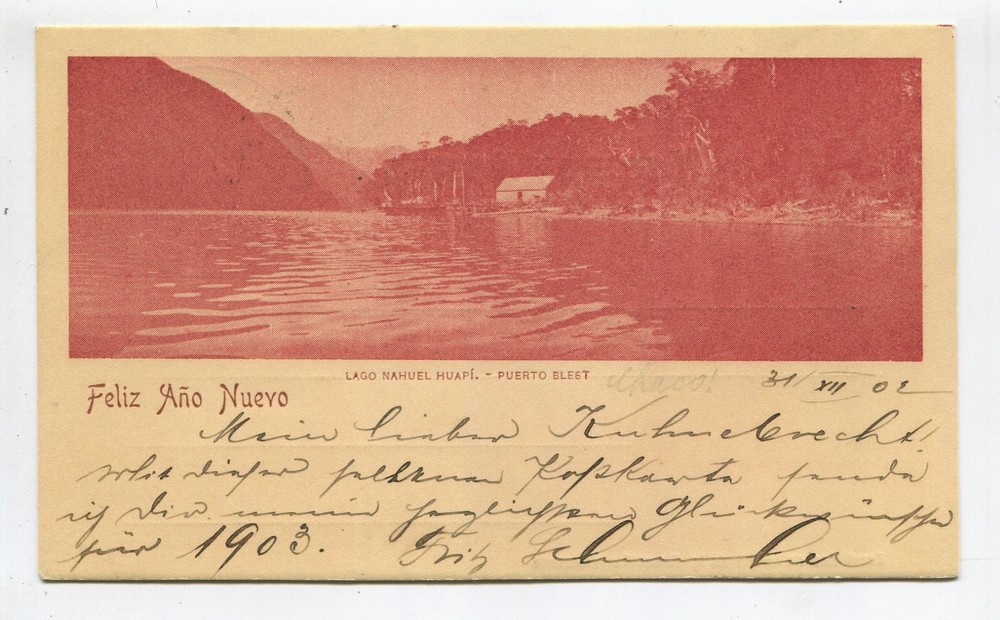 LAGO NAHUEL HUAPÍ. - PUERTO BLEST
Chaco!
31/XII 02
Feliz Año Nuevo
Mein lieber
Mit dieser seltenen Postkarte sende
ich Dir meine herzlichsten Glückwünsche
für 1903. Fritz